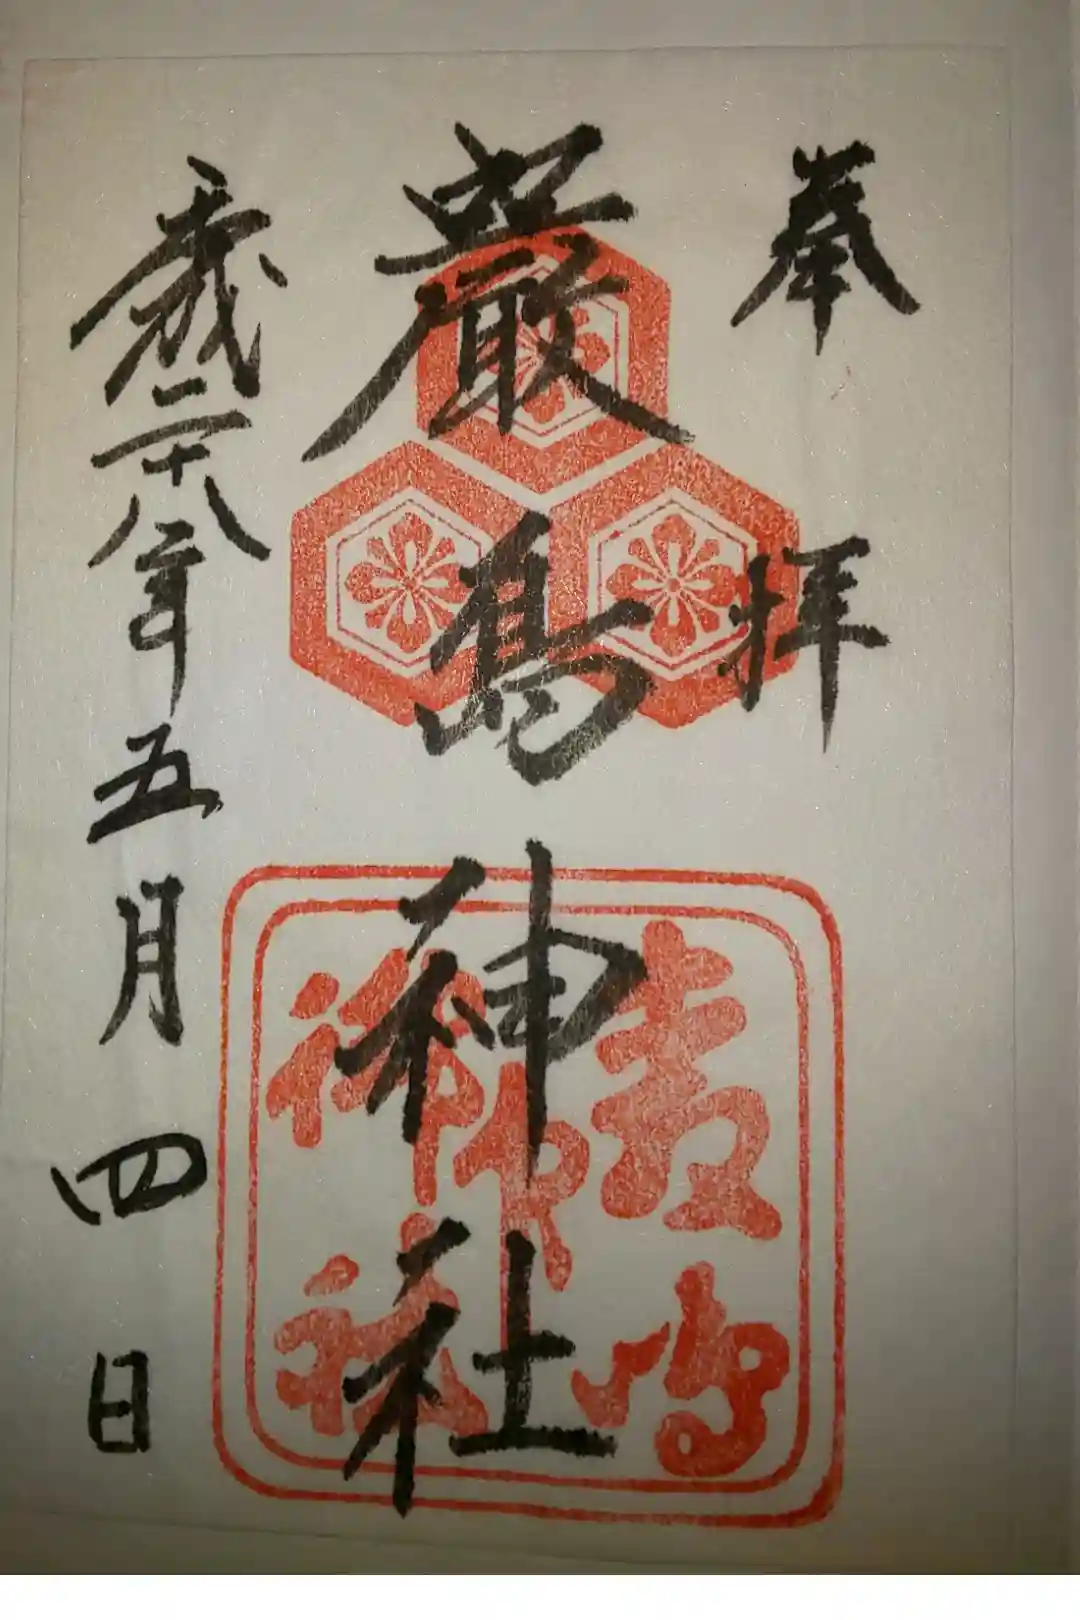 奉拝
厳島神社
平成二十八年五月四日
厳島
神社